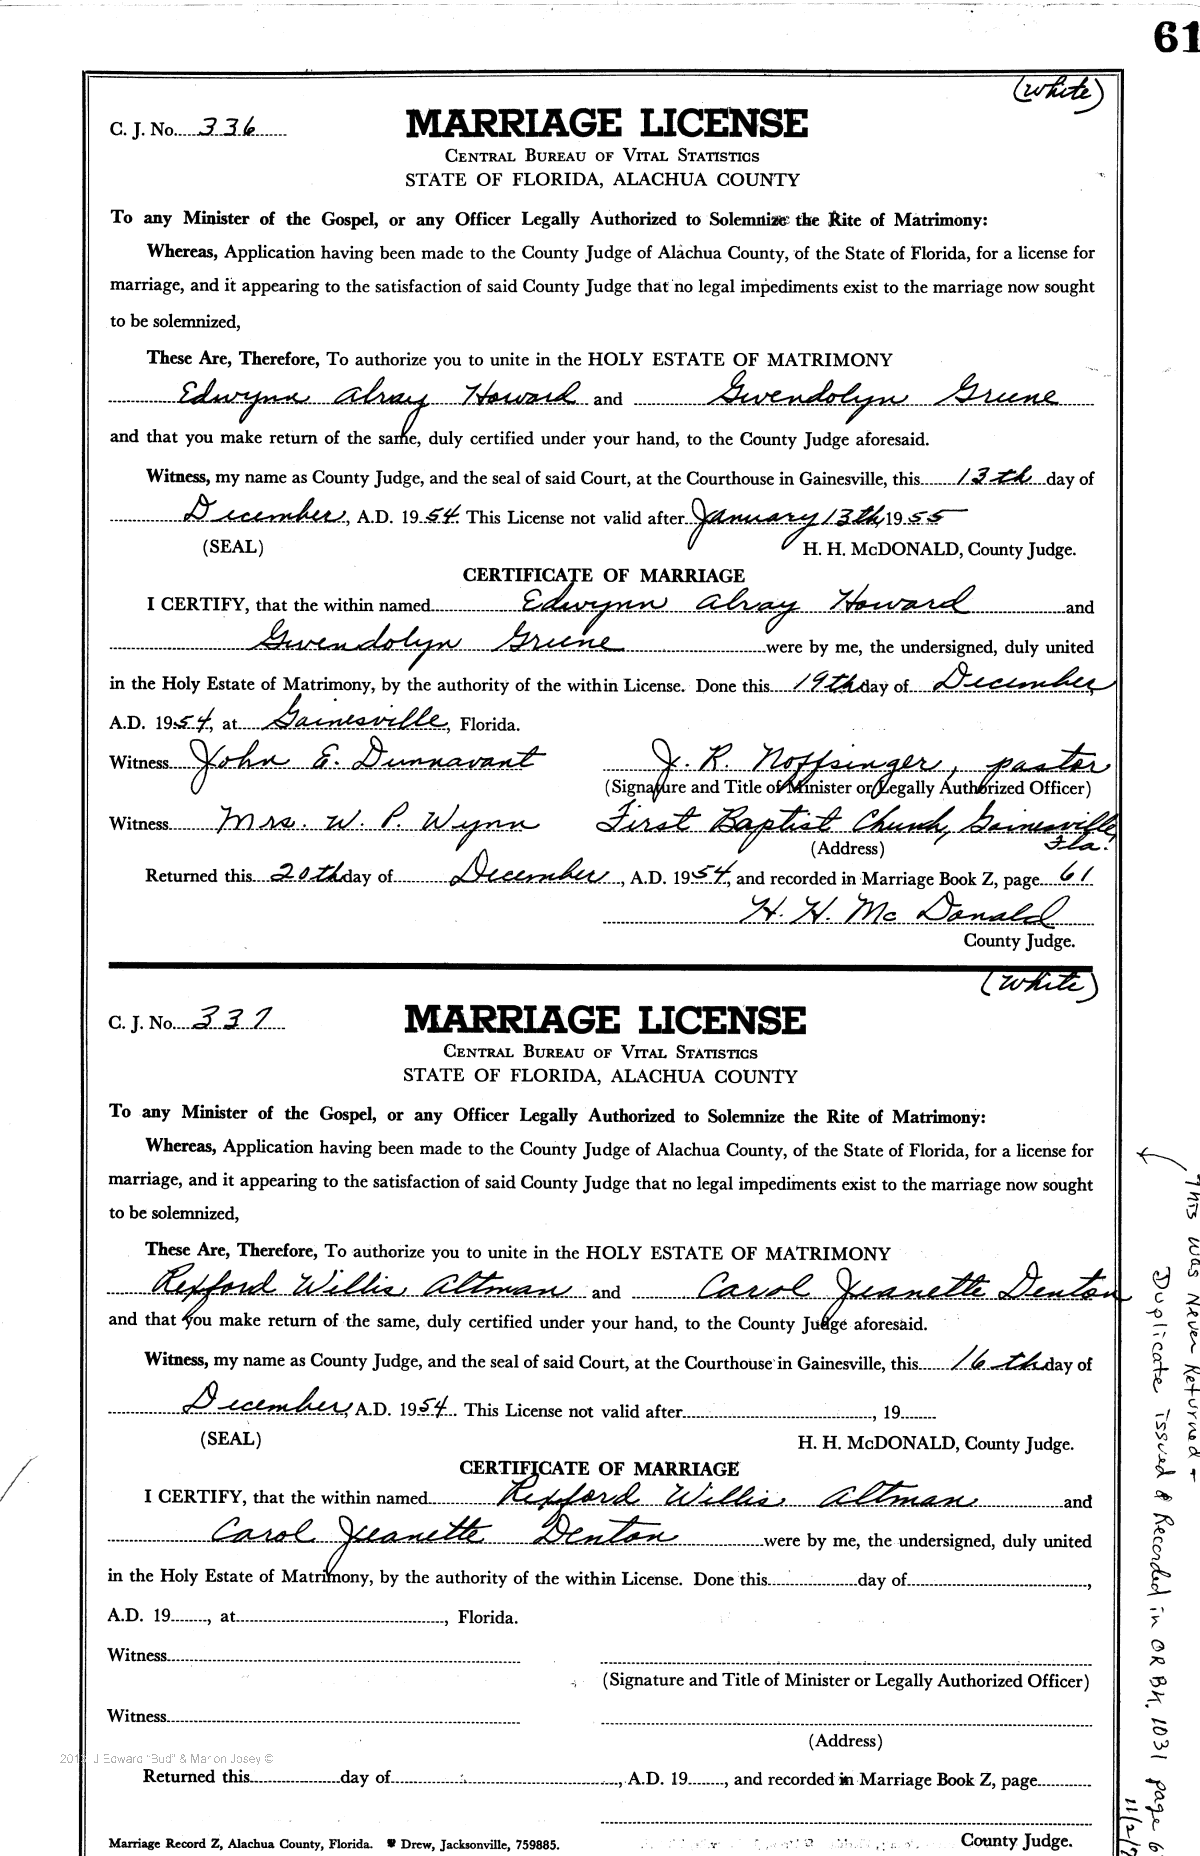 61
(White)
C. J. No. 336
MARRIAGE LICENSE
CENTRAL BUREAU OF VITAL STATISTICS
STATE OF FLORIDA, ALACHUA COUNTY
To any Minister of the Gospel, or any Officer Legally Authorized to Solemnize the Rite of Matrimony:
Whereas, Application having been made to the County Judge of Alachua County, of the State of Florida, for a license for
marriage, and it appearing to the satisfaction of said County Judge that no legal impediments exist to the marriage now sought
to be solemnized,
These Are, Therefore, To authorize you to unite in the HOLY ESTATE OF MATRIMONY
Edwynn Alray Howard and Gwendolyn Greene
and that you make return of the same, duly certified under your hand, to the County Judge aforesaid.
Witness, my name as County Judge, and the seal of said Court, at the Courthouse in Gainesville, this 13th day of
December, A.D. 1954. This License not valid after January 13th, 1955
(SEAL) H. H. McDONALD, County Judge.
CERTIFICATE OF MARRIAGE
I CERTIFY, that the within named Edwynn Alray Howard and
Gwendolyn Greene were by me, the undersigned, duly united
in the Holy Estate of Matrimony, by the authority of the within License. Done this 19th day of December,
A.D. 1954, at Gainesville, Florida.
Witness John E. Dunnavant J. R. Noffsinger, pastor
(Signature and Title of Minister or Legally Authorized Officer)
Witness Mrs. W. P. Wynn First Baptist Church, Gainesville, Fla.
(Address)
Returned this 20th day of December, A.D. 1954, and recorded in Marriage Book Z, page 61
H. H. McDonald
County Judge.
(White)
C. J. No. 337
MARRIAGE LICENSE
CENTRAL BUREAU OF VITAL STATISTICS
STATE OF FLORIDA, ALACHUA COUNTY
To any Minister of the Gospel, or any Officer Legally Authorized to Solemnize the Rite of Matrimony:
Whereas, Application having been made to the County Judge of Alachua County, of the State of Florida, for a license for
marriage, and it appearing to the satisfaction of said County Judge that no legal impediments exist to the marriage now sought
to be solemnized,
These Are, Therefore, To authorize you to unite in the HOLY ESTATE OF MATRIMONY
Rexford Willis Altman and Carol Jeanette Denton
and that you make return of the same, duly certified under your hand, to the County Judge aforesaid.
Witness, my name as County Judge, and the seal of said Court, at the Courthouse in Gainesville, this 16th day of
December, A.D. 1954. This License not valid after , 19
(SEAL) H. H. McDONALD, County Judge.
CERTIFICATE OF MARRIAGE
I CERTIFY, that the within named Rexford Willis Altman and
Carol Jeanette Denton were by me, the undersigned, duly united
in the Holy Estate of Matrimony, by the authority of the within License. Done this day of ,
A.D. 19 , at , Florida.
Witness
(Signature and Title of Minister or Legally Authorized Officer)
Witness
(Address)
J Edward "Bud" & Marion Josey ©
Returned this day of , A.D. 19 , and recorded in Marriage Book Z, page
County Judge.
Marriage Record Z, Alachua County, Florida. Drew, Jacksonville, 759885.
This was Never Returned +
Duplicate issued & Recorded in OR BK. 1031 page